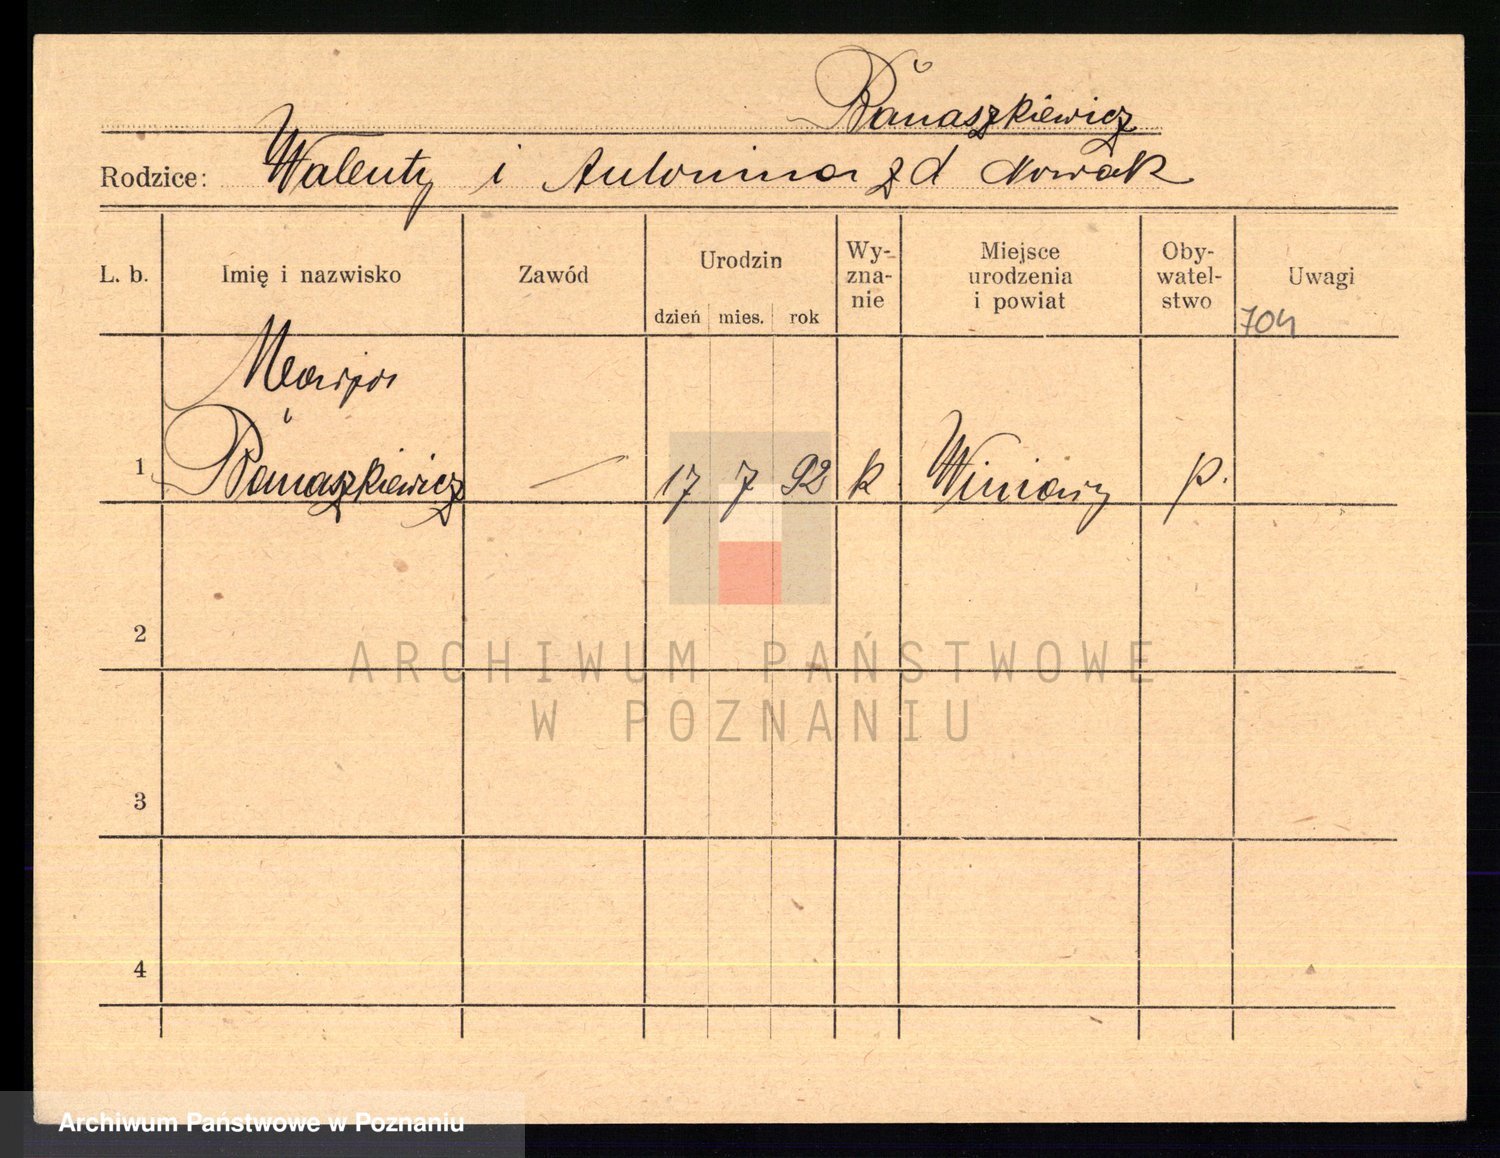 Banaszkiewicz
Rodzice: Walenty i Antonina zd Nowak
L. b. Imię i nazwisko Zawód Urodzin Wy-zna-nie Miejsce urodzenia i powiat Oby-watel-stwo Uwagi
dzień mies. rok
704
Marja
1 Banaszkiewicz — 17 7 92 k Winiary p.
2
ARCHIWUM PAŃSTWOWE
W POZNANIU
3
4
Archiwum Państwowe w Poznaniu